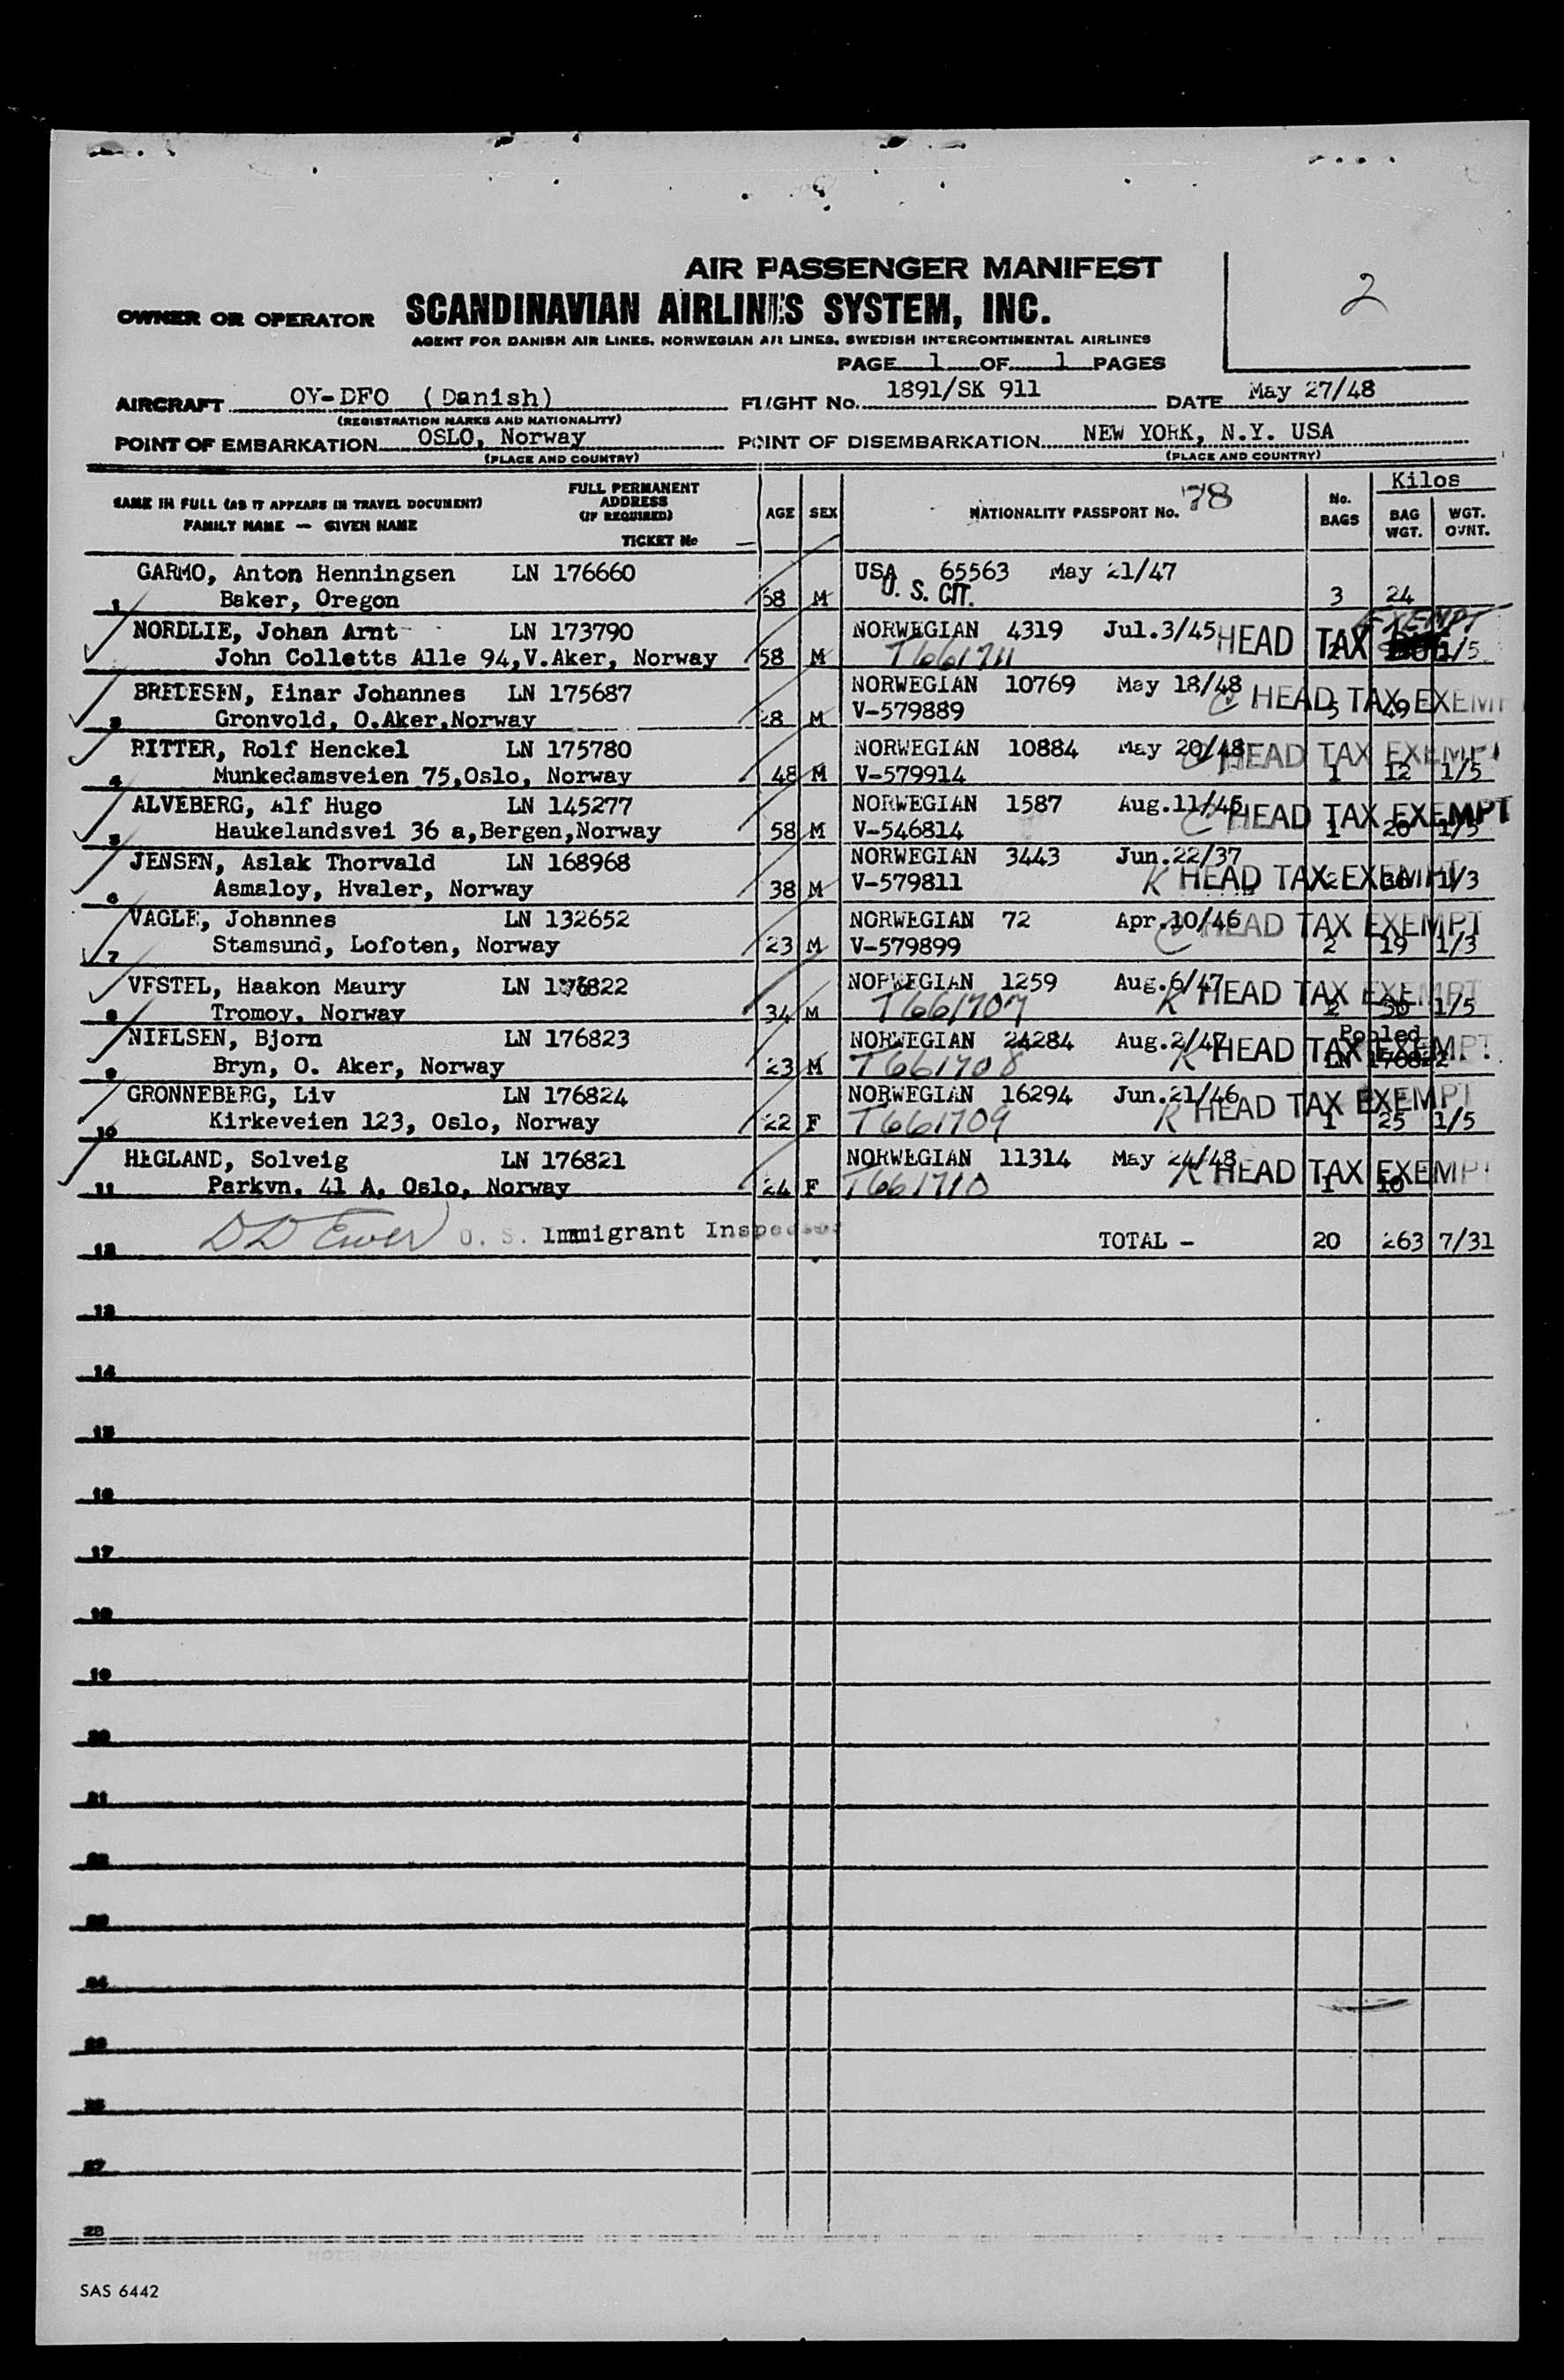 AIR PASSENGER MANIFEST
2
OWNER OR OPERATOR SCANDINAVIAN AIRLINES SYSTEM, INC.
AGENT FOR DANISH AIR LINES, NORWEGIAN AIR LINES, SWEDISH INTERCONTINENTAL AIRLINES
PAGE 1 OF 1 PAGES
AIRCRAFT OY-DFO (Danish) FLIGHT No. 1891/SK 911 DATE May 27/48
(REGISTRATION MARKS AND NATIONALITY)
POINT OF EMBARKATION OSLO, Norway POINT OF DISEMBARKATION NEW YORK, N.Y. USA
(PLACE AND COUNTRY) (PLACE AND COUNTRY)
Kilos
NAME IN FULL (AS IT APPEARS IN TRAVEL DOCUMENT)
FAMILY NAME — GIVEN NAME
FULL PERMANENT
ADDRESS
(IF REQUIRED)
TICKET No
AGE SEX NATIONALITY PASSPORT No. 78
No.
BAGS
BAG
WGT.
WGT.
OVNT.
GARMO, Anton Henningsen LN 176660 USA 65563 May 21/47
1 Baker, Oregon 58 M U. S. CIT. 3 24
NORDLIE, Johan Arnt LN 173790 NORWEGIAN 4319 Jul.3/45 HEAD TAX EXEMPT
John Colletts Alle 94,V.Aker, Norway 58 M T661711 1/5
BREDESEN, Einar Johannes LN 175687 NORWEGIAN 10769 May 18/48 C HEAD TAX EXEMP
3 Gronvold, O.Aker,Norway 28 M V-579889 5 49
RITTER, Rolf Henckel LN 175780 NORWEGIAN 10884 May 20/48 C HEAD TAX EXEMPT
4 Munkedamsveien 75,Oslo, Norway 48 M V-579914 1 12 1/5
ALVEBERG, Alf Hugo LN 145277 NORWEGIAN 1587 Aug.11/45 C HEAD TAX EXEMPT
5 Haukelandsvei 36 a,Bergen,Norway 58 M V-546814 1 20 1/5
JENSEN, Aslak Thorvald LN 168968 NORWEGIAN 3443 Jun.22/37
6 Asmaloy, Hvaler, Norway 38 M V-579811 K HEAD TAX EXEMPT 2 1/3
VAGLE, Johannes LN 132652 NORWEGIAN 72 Apr.10/46 C HEAD TAX EXEMPT
7 Stamsund, Lofoten, Norway 23 M V-579899 2 19 1/3
VESTEL, Haakon Maury LN 176822 NORWEGIAN 1259 Aug.6/47 K HEAD TAX EXEMPT
8 Tromoy, Norway 34 M T661707 2 50 1/5
NIELSEN, Bjorn LN 176823 NORWEGIAN 24284 Aug.2/47 K HEAD TAX EXEMPT Pooled
9 Bryn, O. Aker, Norway 23 M T661708 LN 176822
GRONNEBERG, Liv LN 176824 NORWEGIAN 16294 Jun.21/46 K HEAD TAX EXEMPT
10 Kirkeveien 123, Oslo, Norway 22 F T661709 1 25 1/5
HEGLAND, Solveig LN 176821 NORWEGIAN 11314 May 24/48 K HEAD TAX EXEMPT
11 Parkvn. 41 A, Oslo, Norway 24 F T661710 1 10
12 U. S. Immigrant Inspector TOTAL - 20 263 7/31
13
14
15
16
17
18
19
20
21
22
23
24
25
26
27
28
SAS 6442